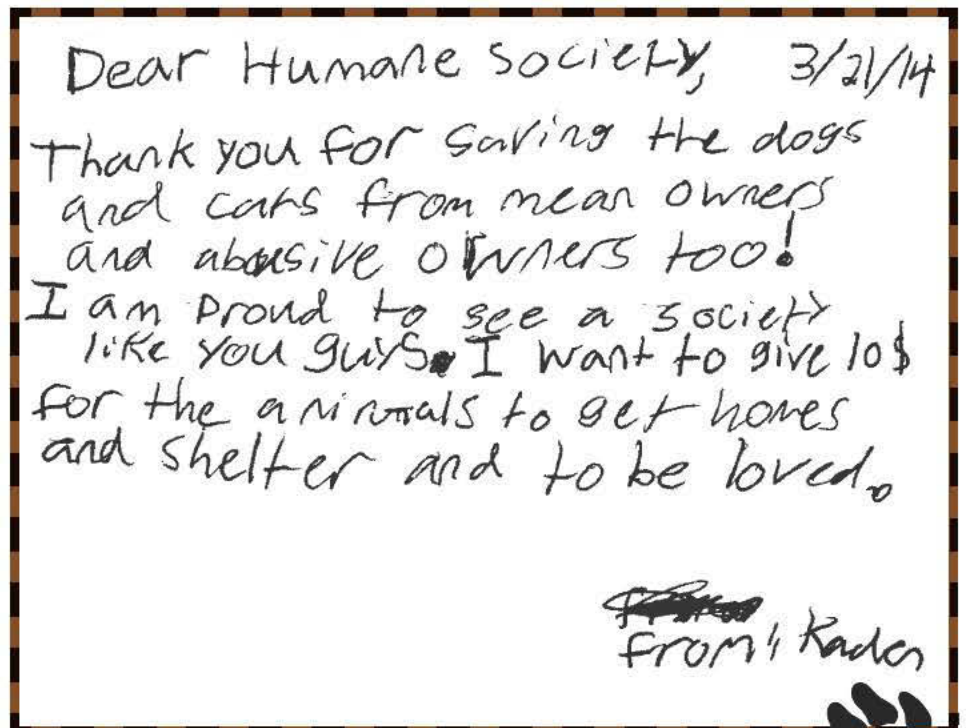 Dear Humane Society, 3/21/14
Thank you for saving the dogs
and cats from mean owners
and abusive owners too!
I am proud to see a society
like you guys. I want to give 10$
for the animals to get homes
and shelter and to be loved.
from: Kaden